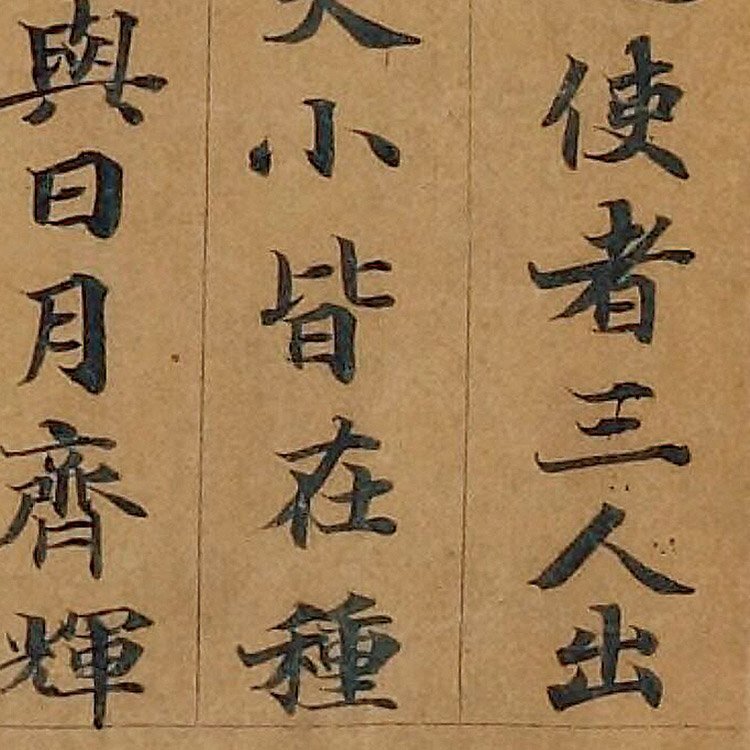 使者三人出
小皆在種
與日月齊輝